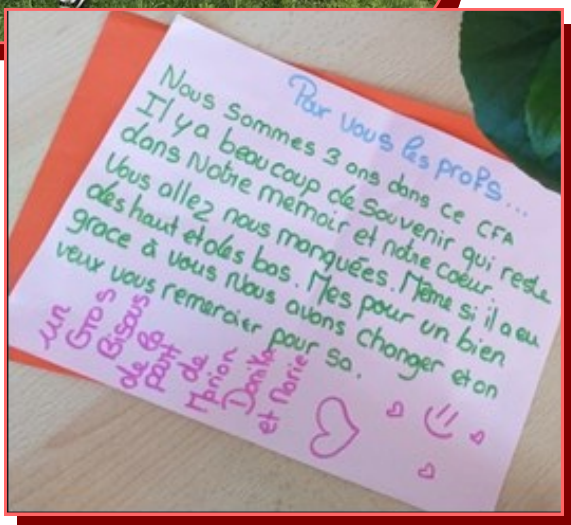 Pour vous les profs...
Nous sommes 3 ans dans ce CFA
Il y a beaucoup de souvenir qui reste
dans notre memoir et notre coeur.
Vous allez nous manquées. Même si il a eu
des haut et des bas. Mes pour un bien
grace à vous Nous avons changer et on
veux vous remercier pour sa.
un
Gros
Bisous
de la
part
de
Marion
Danika
et Marie